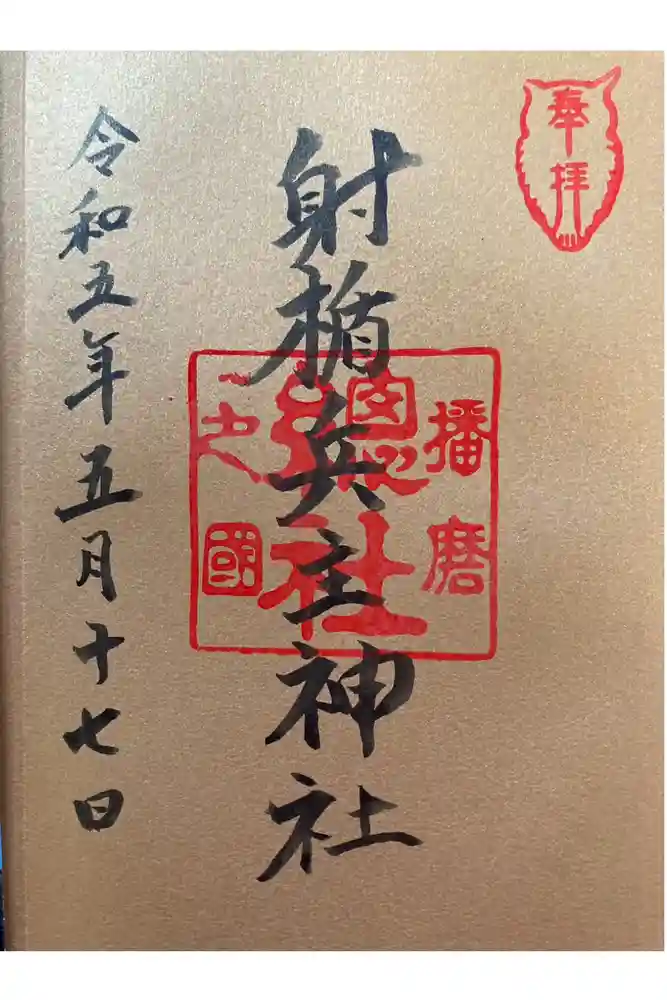 奉拝
射楯兵主神社
播磨
總社
之國
令和五年五月十七日